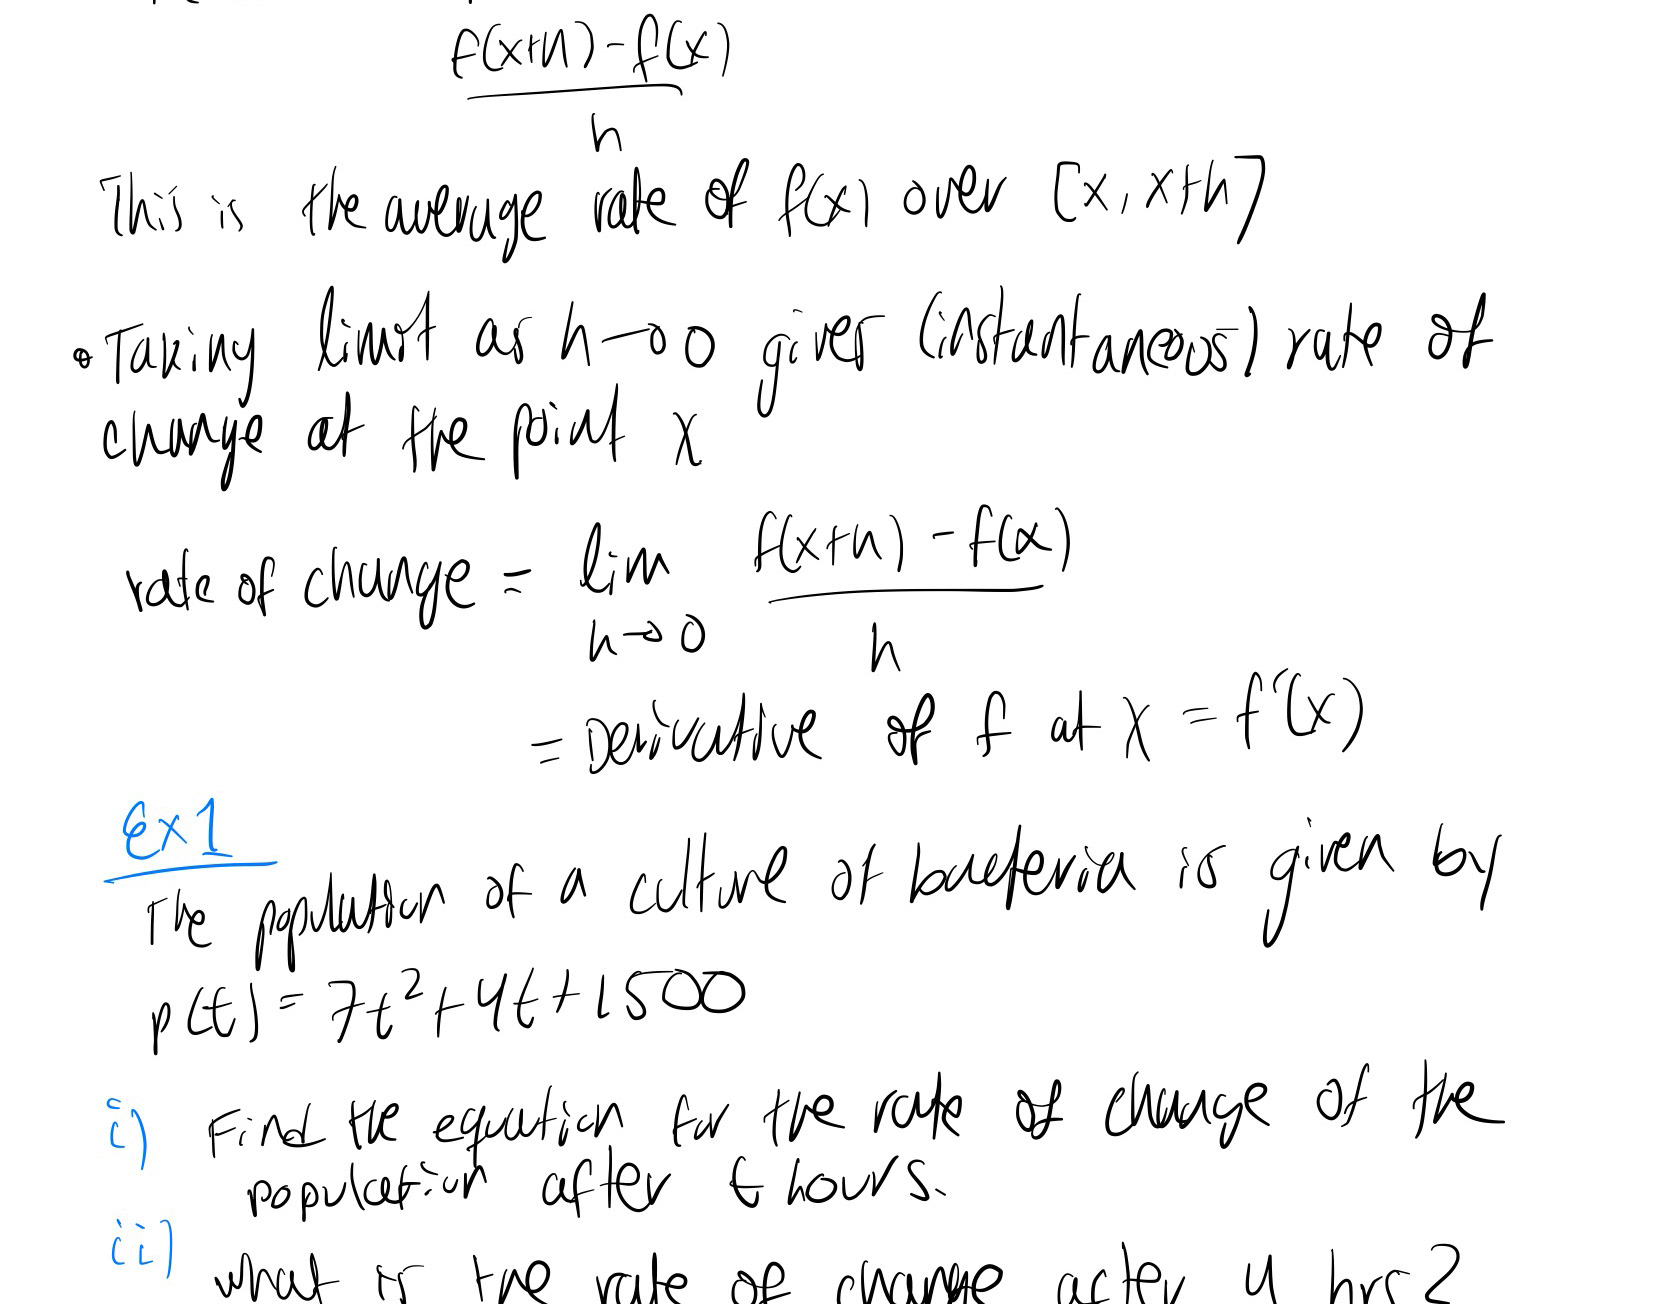 f(x+h)-f(x)
h
This is the average rate of f(x) over [x, x+h]
• Taking limit as h→0 gives (instantaneous) rate of
change at the point x
rate of change = lim f(x+h) - f(x)
h→0 h
= Derivative of f at x = f'(x)
Ex1
The population of a culture of bacteria is given by
p(t) = 7t²+4t+1500
i) Find the equation for the rate of change of the
population after t hours.
ii) what is the rate of change after 4 hrs?